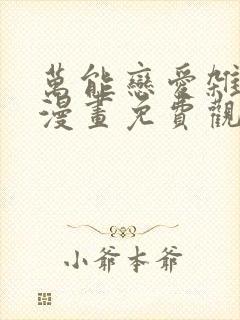 萬能戀愛雜
漫畫免費觀
小爺本爺